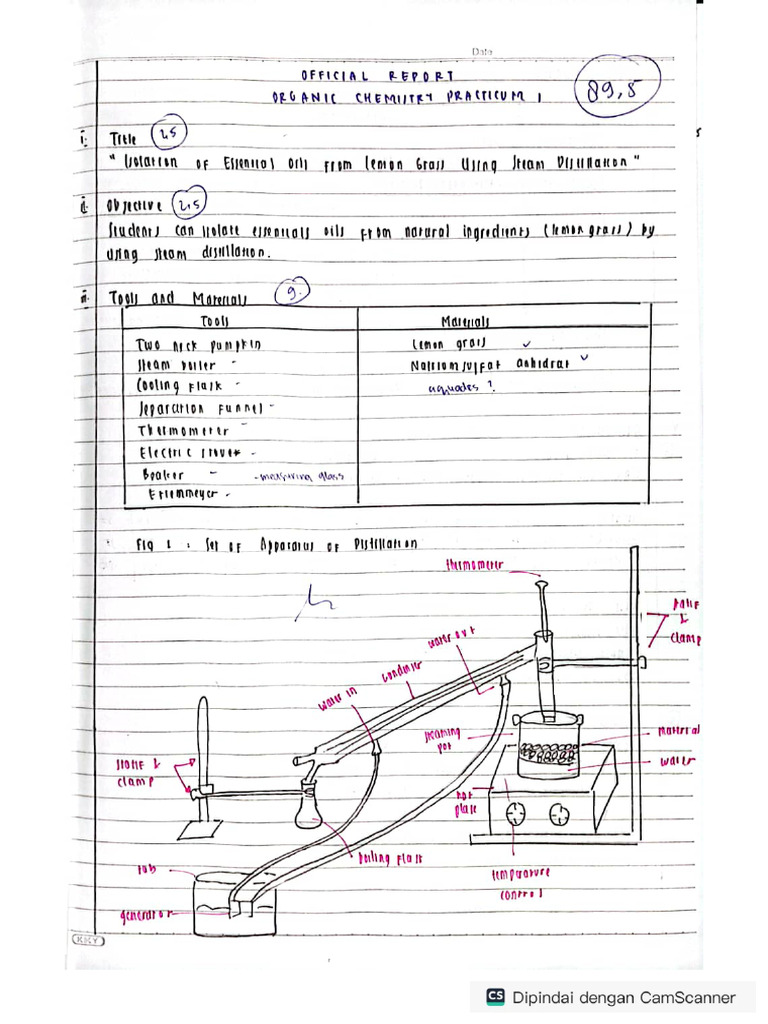 Date
OFFICIAL REPORT
ORGANIC CHEMISTRY PRACTICUM 1
89,5
i. Title 2,5
"Isolation of Essential Oils From Lemon Grass Using Steam Distillation"
ii. Objective 2,5
Students can isolate essentials oils from natural ingredients (lemon grass) by
using steam distillation.
iii. Tools and Materials 9.
Tools Materials
Two neck pumpkin Lemon grass
Steam boiler - Natriumsulfat anhidrat
Cooling flask - aquades ?
Separation funnel -
Thermometer -
Electric stove -
Beaker - - measuring glass
Erlenmeyer -
Fig 1 : Set of Apparatus of Distillation
thermometer
water out
condenser
water in
clamp
steaming pot
material
water
hot plate
clamp
boiling flask
temperature control
tub
generator
KKY
CS Dipindai dengan CamScanner